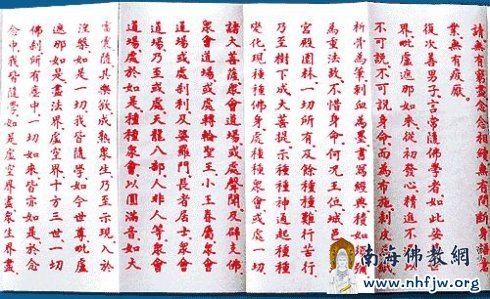 請無有窮盡念念相續無有間斷身語意
業無有疲厭
復次善男子言常隨佛學者如此娑婆世
界毗盧遮那如來從初發心精進不退以
不可說不可說身命而為布施剝皮為紙
析骨為筆刺血為墨書寫經典積如須彌
為重法故不惜身命何況王位城邑聚
宮殿園林一切所有及餘種種難行苦行
乃至樹下成大菩提示種種神通起種種
變化現種種佛身處種種眾會或處一切
諸大菩薩眾會道場或處聲聞及辟支佛
眾會道場或處轉輪聖王小王眷屬眾會
道場或處剎利及婆羅門長者居士眾會
道場乃至或處天龍八部人非人等眾會
道場處於如是種種眾會以圓滿音如大
雷震隨其樂欲成熟眾生乃至示現入於
涅槃如是一切我皆隨學如今世尊毗盧
遮那如是盡法界虛空界十方三世一切
佛剎所有塵中一切如來皆亦如是於念
念中我皆隨學如是虛空界盡眾生界盡
南海佛教網
www.nhfjw.org